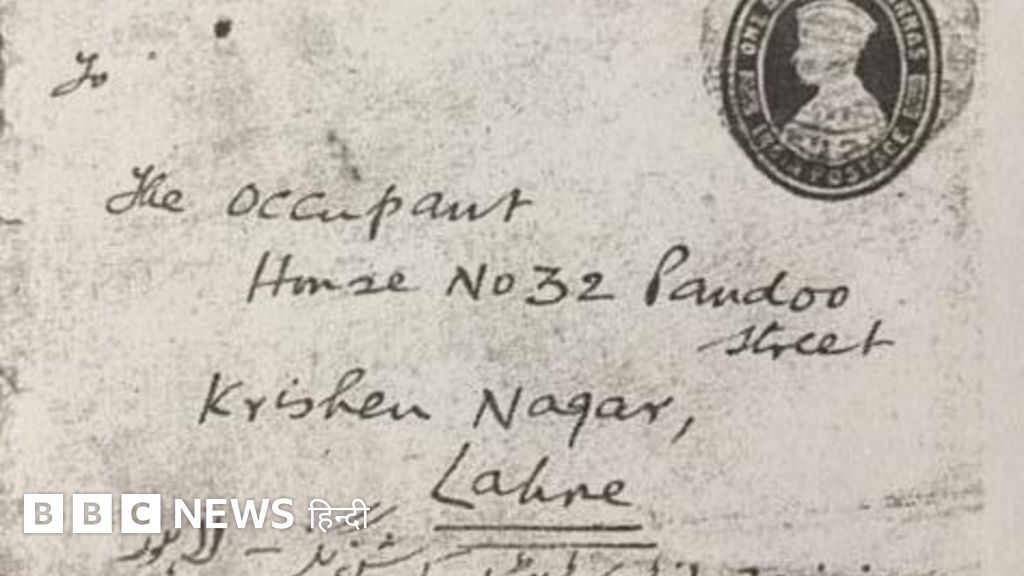 To
ONE & ANNAS
INDIA POSTAGE
The Occupant
House No 32 Pandoo
Street
Krishen Nagar,
Lahore
BBC NEWS हिन्दी
لاہور